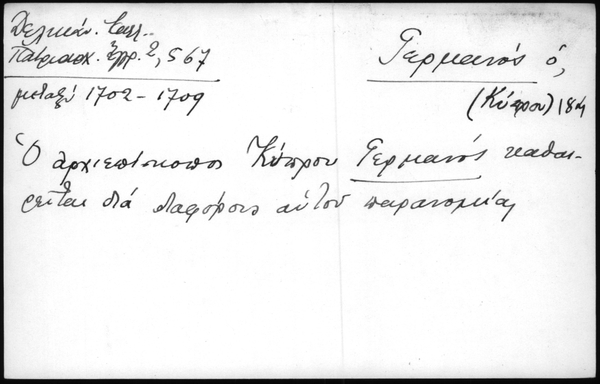 Δελικάν. Καλλ..
Πατριαρχ. Ἔγγρ. 2, 567
μεταξύ 1702 – 1709
Γερμανός ὁ,
(Κύπρου) 18
Ὁ ἀρχιεπίσκοπος Κύπρου Γερμανός καθαι-
ρεῖται διά διαφόρους αὐτοῦ παρανομίας